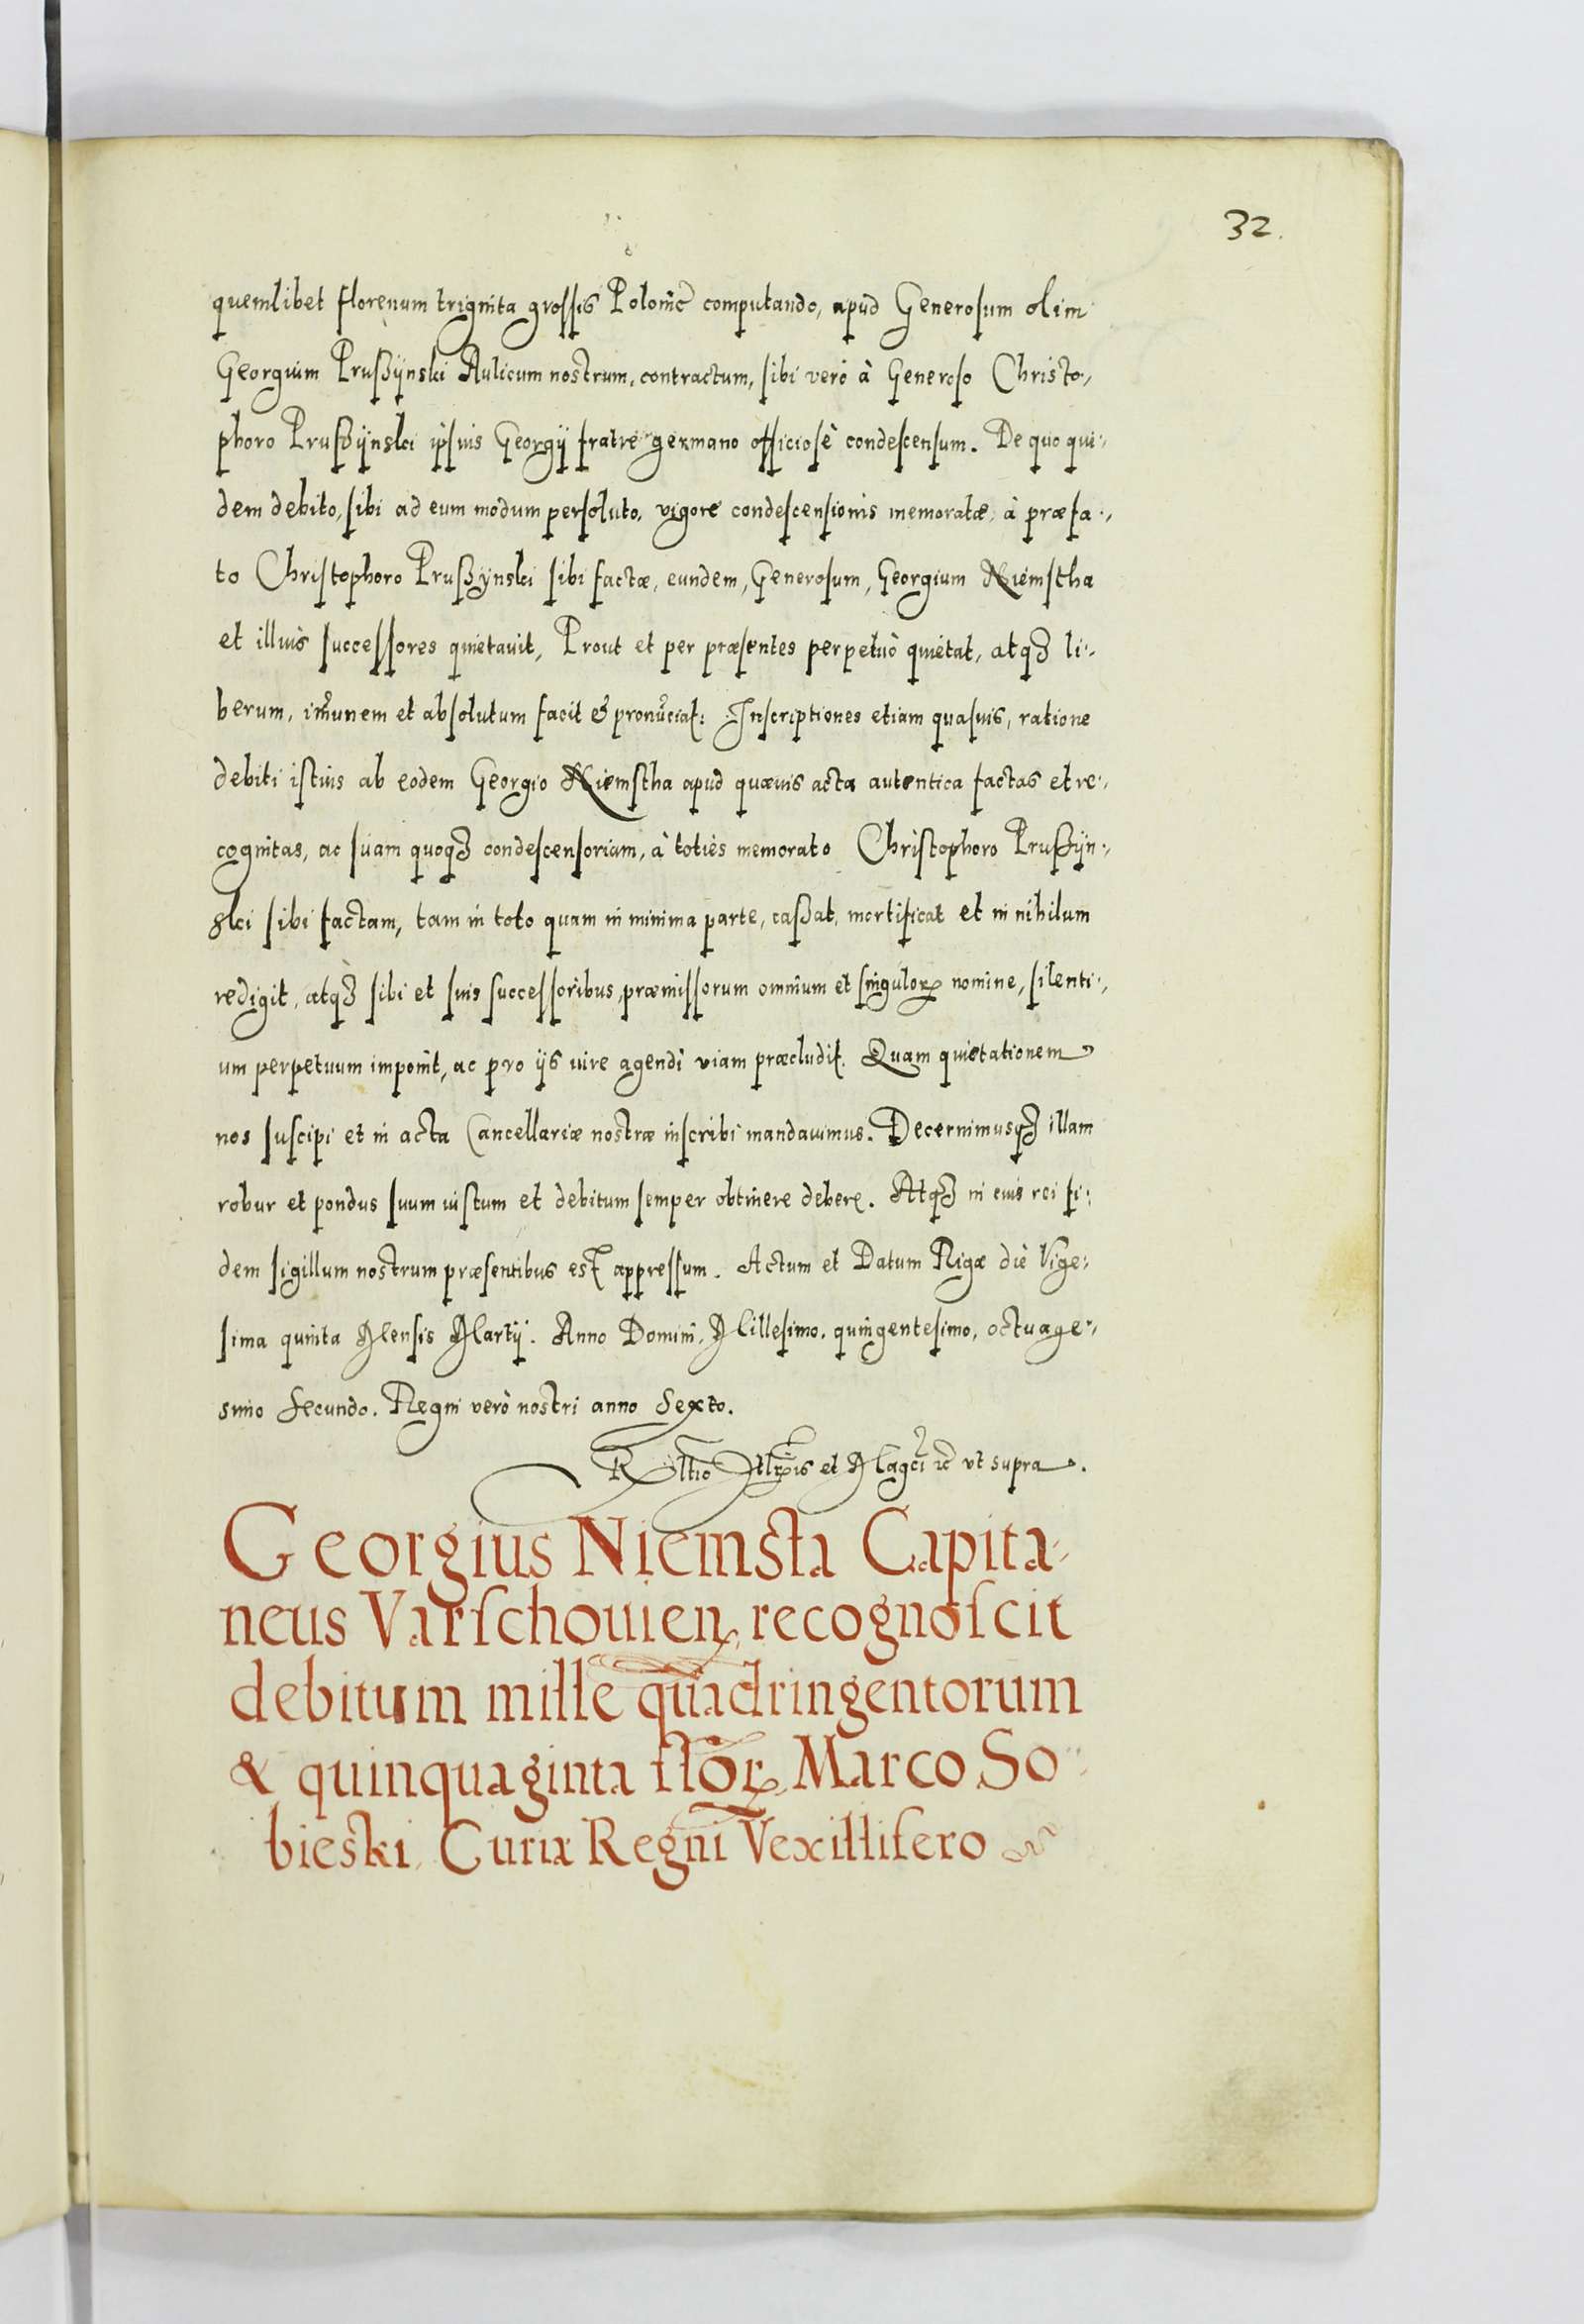 32.
quemlibet florenum triginta grossis Polonic̄ computando, apud Generosum olim
Georgium Prußÿnski Aulicum nostrum, contractum, sibi verò à Generoso Christo⸗
phoro Prußÿnski ipsius Georgij fratre germano officiosè condescensum. De quo qui⸗
dem debito, sibi ad eum modum persoluto, vigore condescensionis memoratæ, à præfa⸗
to Christophoro Prußÿnski sibi factæ, eundem, Generosum, Georgium Niemstha
et illius successores quietauit, Prout et per præsentes perpetuò quietat, atqꝫ li⸗
berum, im̄unem et absolutum facit & pronūciat: Inscriptiones etiam quasuis, ratione
debiti istius ab eodem Georgio Niemstha apud quæuis acta autentica factas et re⸗
cognitas, ac suam quoqꝫ condescensoriam, à toties memorato Christophoro Prußÿn⸗
ski sibi factam, tam in toto quam in minima parte, caßat, mortificat et in nihilum
redigit, atqꝫ sibi et suis successoribus, præmissorum omnium et singuloꝝ nomine, silenti⸗
um perpetuum imponit, ac pro ijs iure agendi viam præcludit. Quam quietationem
nos suscipi et in acta Cancellariæ nostræ inscribi mandauimus. Decernimusqꝫ illam
robur et pondus suum iustum et debitum semper obtinere debere. Atqꝫ in eius rei fi⸗
dem sigillum nostrum præsentibus est appressum. Actum et Datum Rigæ die Vige⸗
sima quinta Mensis Martij. Anno Domini, Millesimo, quingentesimo, octuage⸗
simo secundo. Regni verò nostri anno Sexto.
et Magci ꝛc̄ vt supra.
Georgius Niemsta Capita⸗
neus Varschouien, recognoscit
debitum mille quadringentorum
& quinquaginta flōꝝ, Marco So⸗
bieski, Curiæ Regni Vexillifero